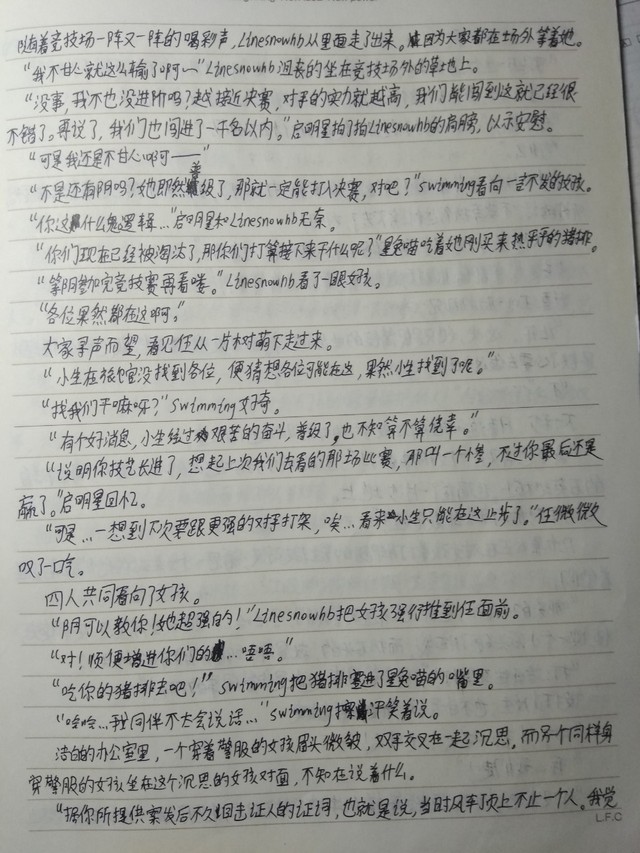 随着竞技场一阵又一阵的喝彩声,Linesnowhb从里面走了出来。因为大家都在场外等着她。
“我不甘心就这么输了啊——”Linesnowhb沮丧的坐在竞技场外的草地上。
“没事,我不也没进阶吗?越接近决赛,对手的实力就越高,我们能闯到这就已经很
不错了。再说了,我们也闯进了一千名以内。”启明星拍了拍Linesnowhb的肩膀,以示安慰。
“可是我还是不甘心啊——”
“不是还有阴吗?她即然晋级了,那就一定能打入决赛,对吧?”swimming看向一言不发的女孩。
“你这什么鬼逻辑...”启明星和Linesnowhb无奈。
“你们现在已经被淘汰了,那你们打算接下来干什么呢?”星兔喵吃着她刚买来热乎乎的猪排。
“等阴参加完竞技赛再看喽。”Linesnowhb看了一眼女孩。
“各位果然都在这啊。”
大家寻声而望,看见任从一片树荫下走过来。
“小生在旅馆没找到各位,便猜想各位可能在这,果然小生找到了呢。”
“找我们干嘛呀?”swimming好奇。
“有个好消息,小生经过艰苦的奋斗,晋级了,也不知算不算侥幸。”
“说明你技艺长进了,想起上次我们去看的那场比赛,那叫一个惨,不过你最后还是
赢了。”启明星回忆。
“可是...一想到下次要跟更强的对手打架,唉...看来小生只能在这止步了。”任微微
叹了一口气。
四人共同看向了女孩。
“阴可以教你!她超强的!”Linesnowhb把女孩强行推到任面前。
“对!顺便增进你们的...唔唔。”
“吃你的猪排去吧!”swimming把猪排塞进了星兔喵的嘴里。
“哈哈...我同伴不太会说话...”swimming擦汗笑着说。
洁白的办公室里,一个穿着警服的女孩眉头微皱,双手交叉在一起沉思。而另个同样身
穿警服的女孩坐在这个沉思的女孩对面,不知在说着什么。
“据你所提供案发后不久目击证人的证词,也就是说,当时风车顶上不止一个人。我觉
L.F.C